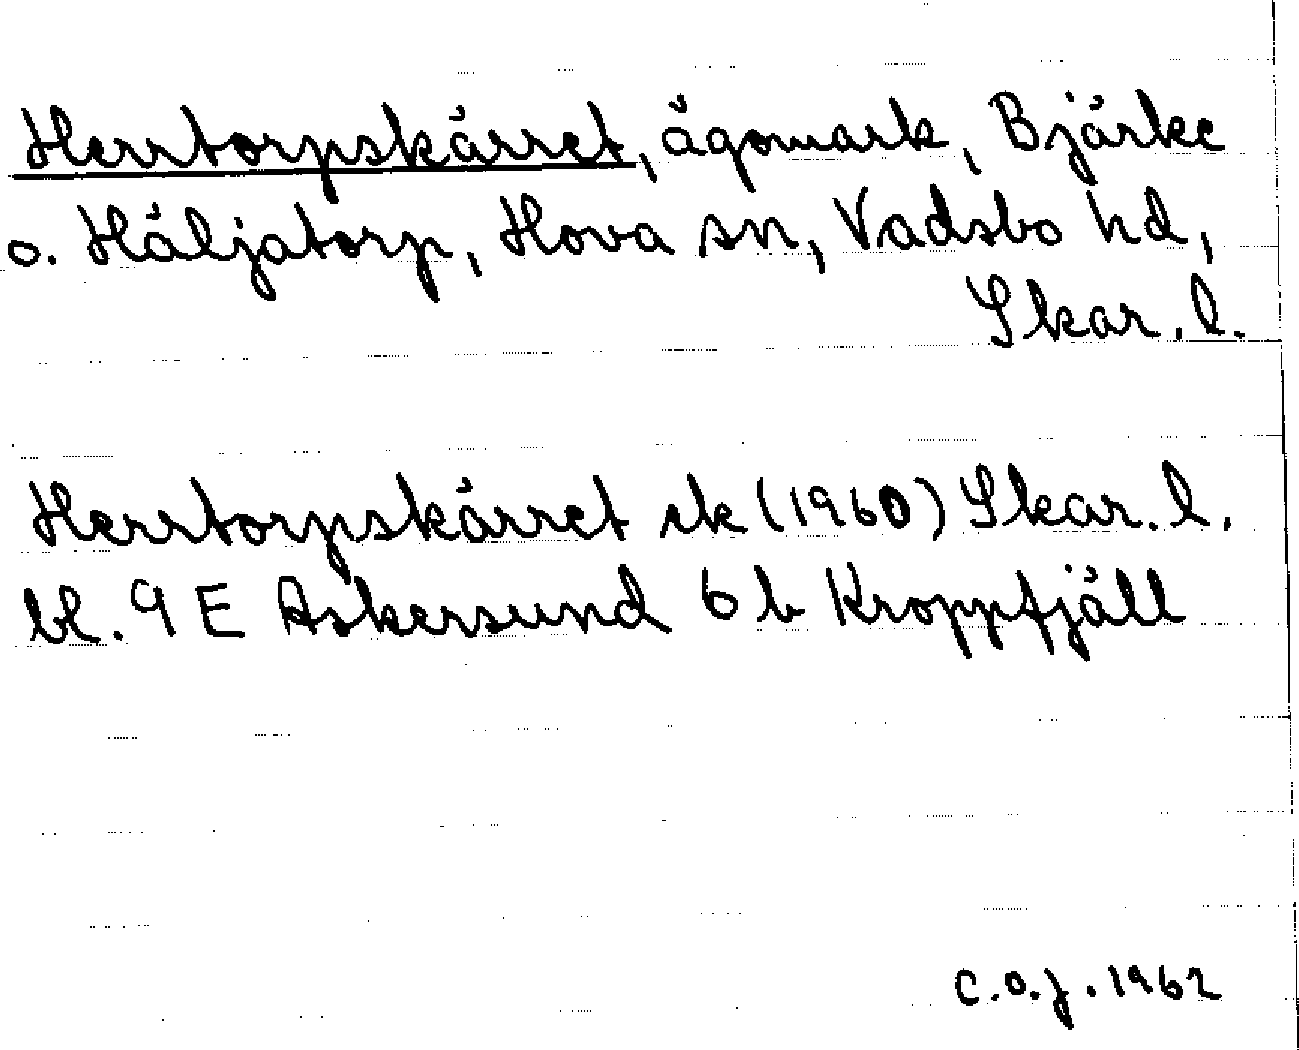 Herrtorpskärret, ägomark, Bjärke
o. Häljatorp, Hova sn, Vadsbo hd,
Skar. l.
Herrtorpskärret ek (1960) Skar. l.
bl. 9 E Askersund 6 b Kroppfjäll
C.O.J. 1962